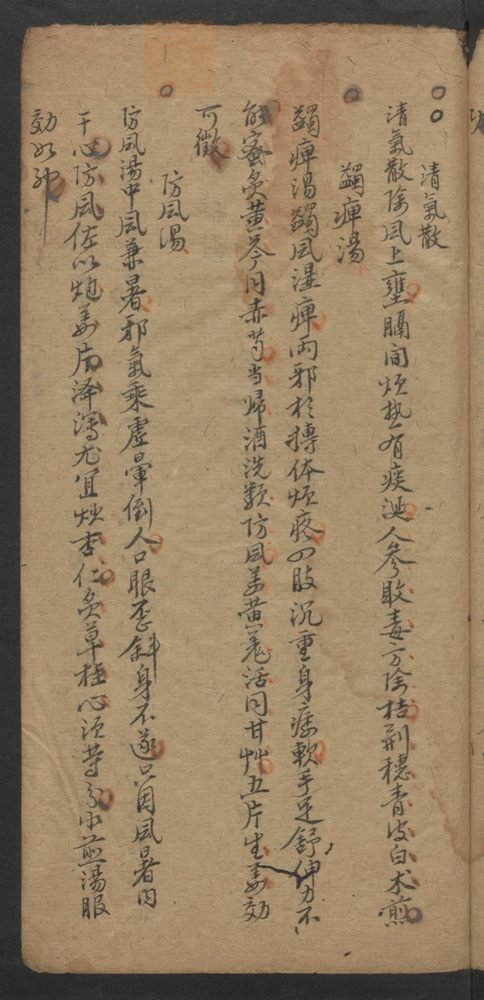 清氣散
清氣散除風上壅膈间煩热有痰涎人參敗毒方除桔荆穗青皮白术煎
蠲痺湯
蠲痺湯蠲風湿痺两邪相摶体煩疼四肢沉重身痿軟手足舒伸力不
能蜜炙黄芩同赤芍当帰酒洗数防風姜黄羗活同甘艸五片生姜効
可徵
防風湯
防風湯中風兼暑邪氣乘虚暈倒人口眼歪斜身不遂只因風暑内
干心防風佐以炮姜片泽瀉尤宜炒杏仁炙草桂心須等分水煎湯服
効如神